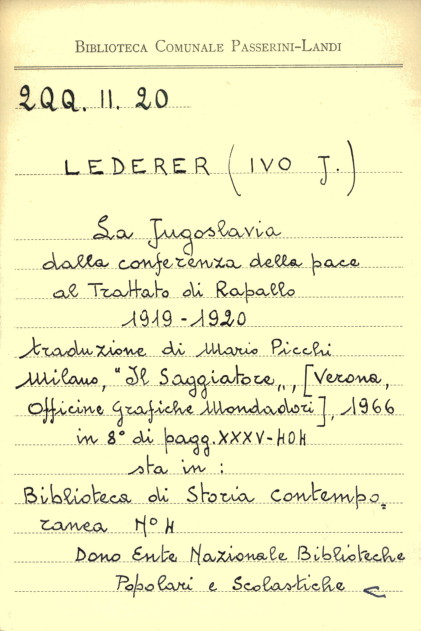 BIBLIOTECA COMUNALE PASSERINI-LANDI
2QQ. II. 20
LEDERER (IVO J.)
La Jugoslavia
dalla conferenza della pace
al Trattato di Rapallo
1919-1920
traduzione di Mario Picchi
Milano, "Il Saggiatore„, [Verona,
Officine Grafiche Mondadori], 1966
in 8° di pagg. XXXV-404
sta in :
Biblioteca di Storia Contempo=
ranea N° 4
Dono Ente Nazionale Biblioteche
Popolari e Scolastiche